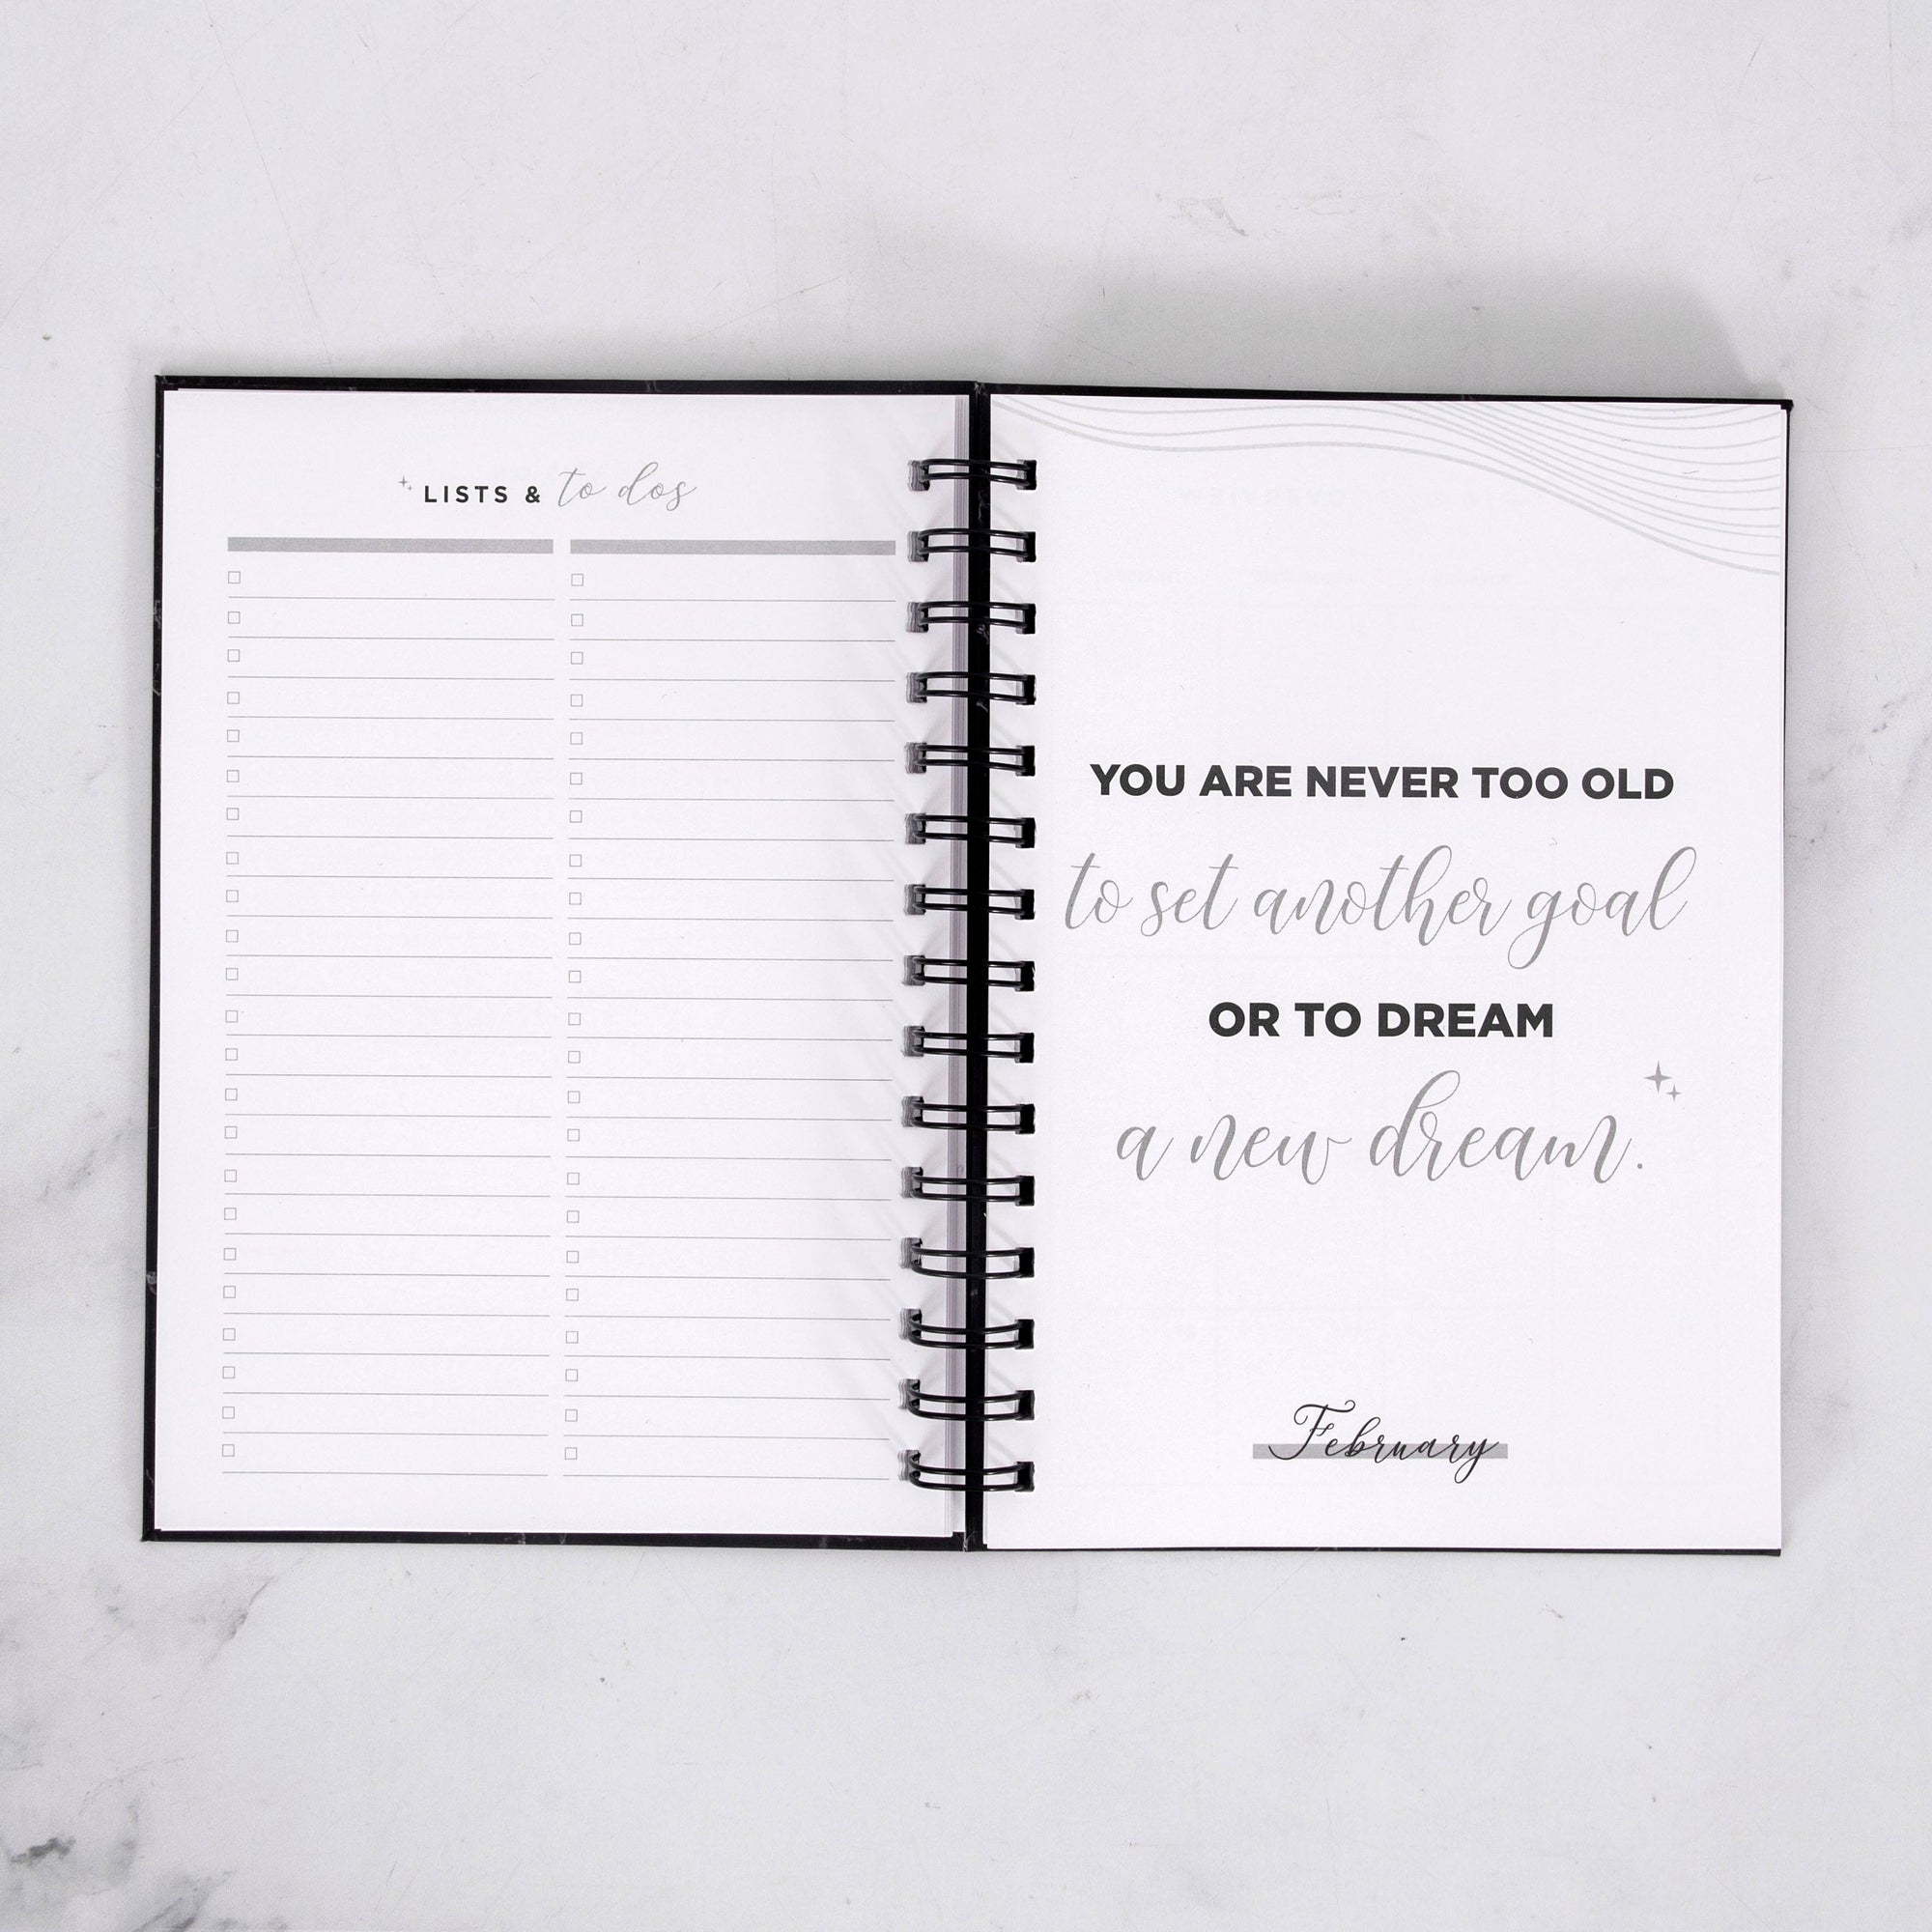 LISTS & to dos
YOU ARE NEVER TOO OLD
to set another goal
OR TO DREAM
a new dream.
February